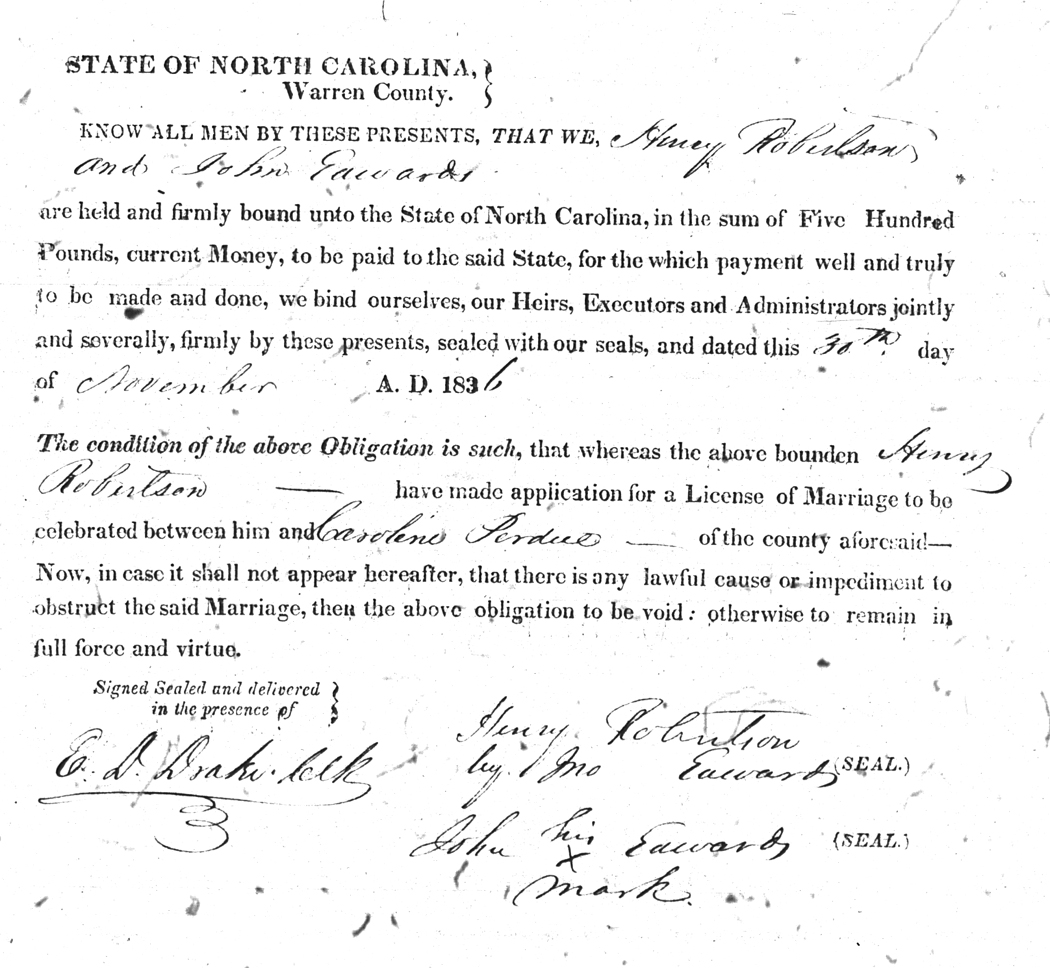 STATE OF NORTH CAROLINA,
Warren County.
KNOW ALL MEN BY THESE PRESENTS, THAT WE, Henry Robertson
and John Edwards
are held and firmly bound unto the State of North Carolina, in the sum of Five Hundred
Pounds, current Money, to be paid to the said State, for the which payment well and truly
to be made and done, we bind ourselves, our Heirs, Executors and Administrators jointly
and severally, firmly by these presents, sealed with our seals, and dated this 30th. day
of November A. D. 1836
The condition of the above Obligation is such, that whereas the above bounden Henry
Robertson — have made application for a License of Marriage to be
celebrated between him and Caroline Perdue — of the county aforesaid—
Now, in case it shall not appear hereafter, that there is any lawful cause or impediment to
obstruct the said Marriage, then the above obligation to be void: otherwise to remain in
full force and virtue.
Signed Sealed and delivered
in the presence of
E. D. Drake. Clk
Henry Robertson
by Jno Edwards (SEAL.)
John his Edwards (SEAL.)
X
mark.